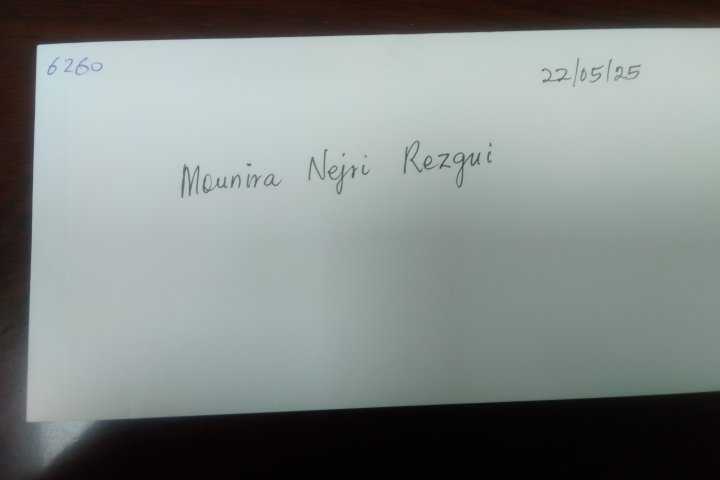 6260
22/05/25
Mounira Nejri Rezgui